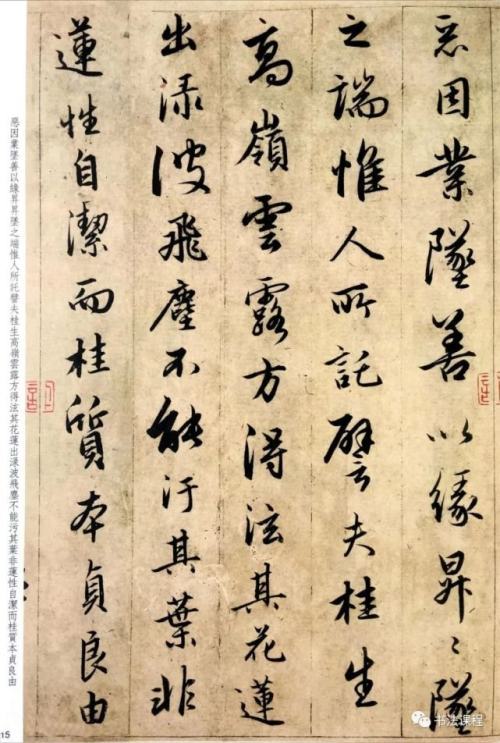 惡因業墜善以緣昇〻墜
之端惟人所託譬夫桂生
高嶺雲露方得泫其花蓮
出渌波飛塵不能汙其葉非
蓮性自潔而桂質本貞良由
惡因業墜善以緣昇昇墜之端惟人所託譬夫桂生高嶺雲露方得泫其花蓮出渌波飛塵不能污其葉非蓮性自潔而桂質本貞良由
15
书法课程